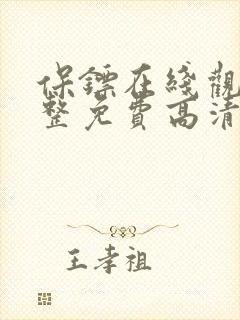 保鏢在綫觀
整免費高清
王孝祖